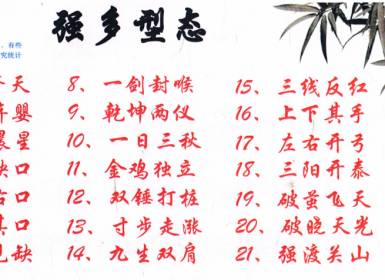 强多型态
、有些
究统计
天
婴
晨星
缺口
右口
其口
见缺
8、一剑封喉
9、乾坤两仪
10、一日三秋
11、金鸡独立
12、双锤打桩
13、寸步走涨
14、九生双肩
15、三线反红
16、上下其手
17、左右开弓
18、三阳开泰
19、破茧飞天
20、破晓天光
21、强渡关山